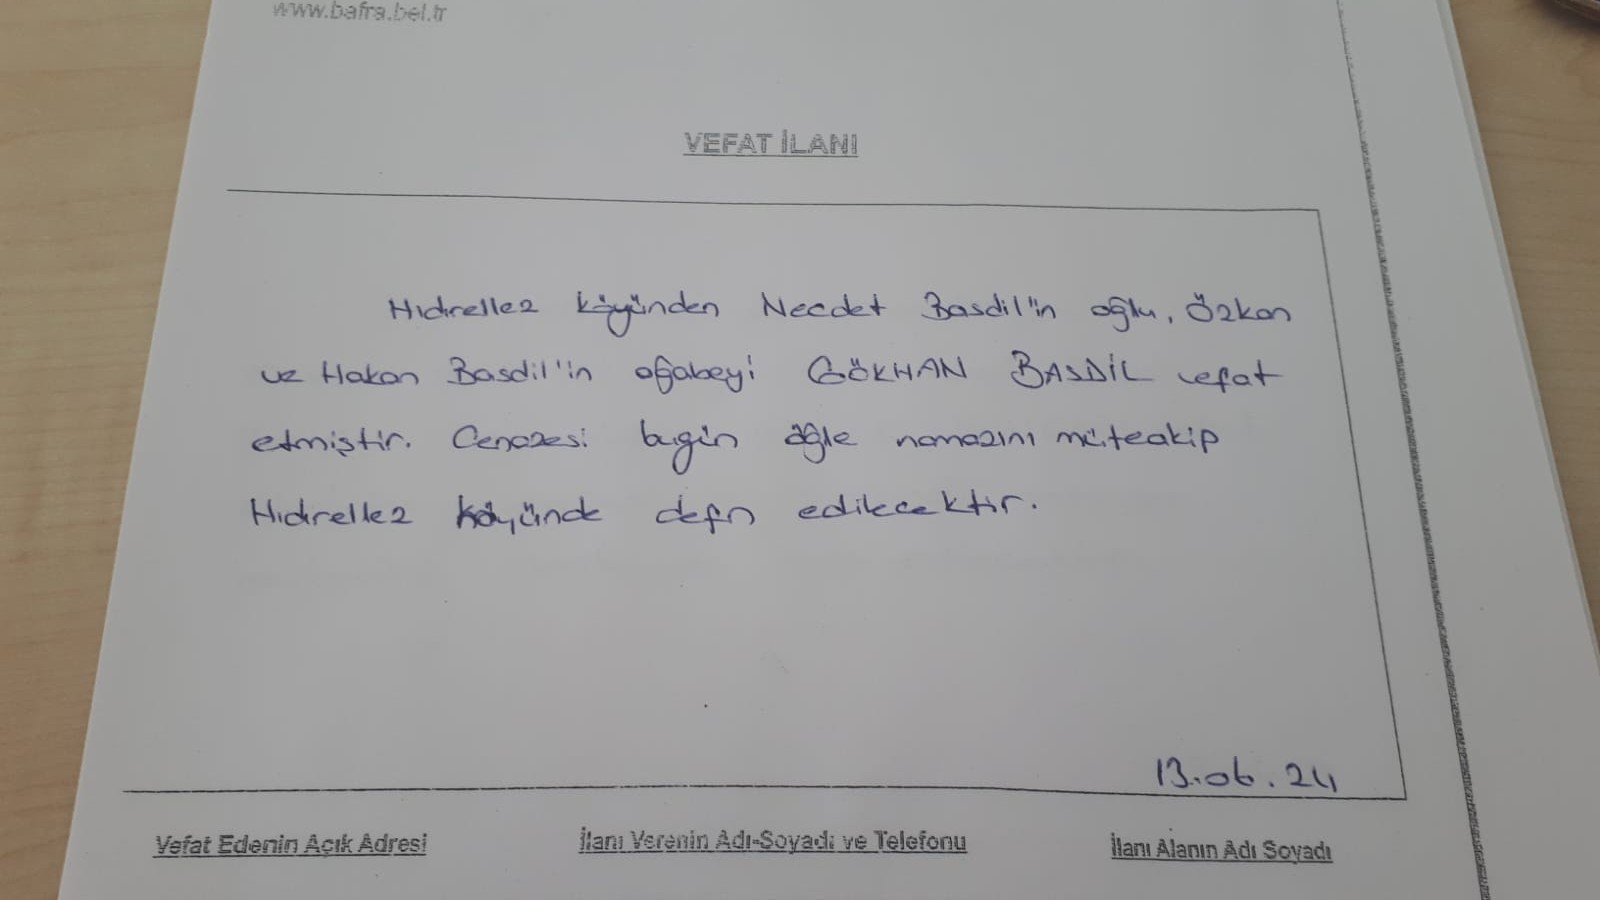 www.bafra.bel.tr
VEFAT İLANI
Hıdırellez köyünden Necdet Basdil'in oğlu, Özkan
ve Hakan Basdil'in ağabeyi GÖKHAN BASDİL vefat
etmiştir. Cenazesi bugün öğle namazını müteakip
Hıdırellez köyünde defn edilecektir.
13.06.24
Vefat Edenin Açık Adresi
İlanı Verenin Adı-Soyadı ve Telefonu
İlanı Alanın Adı Soyadı